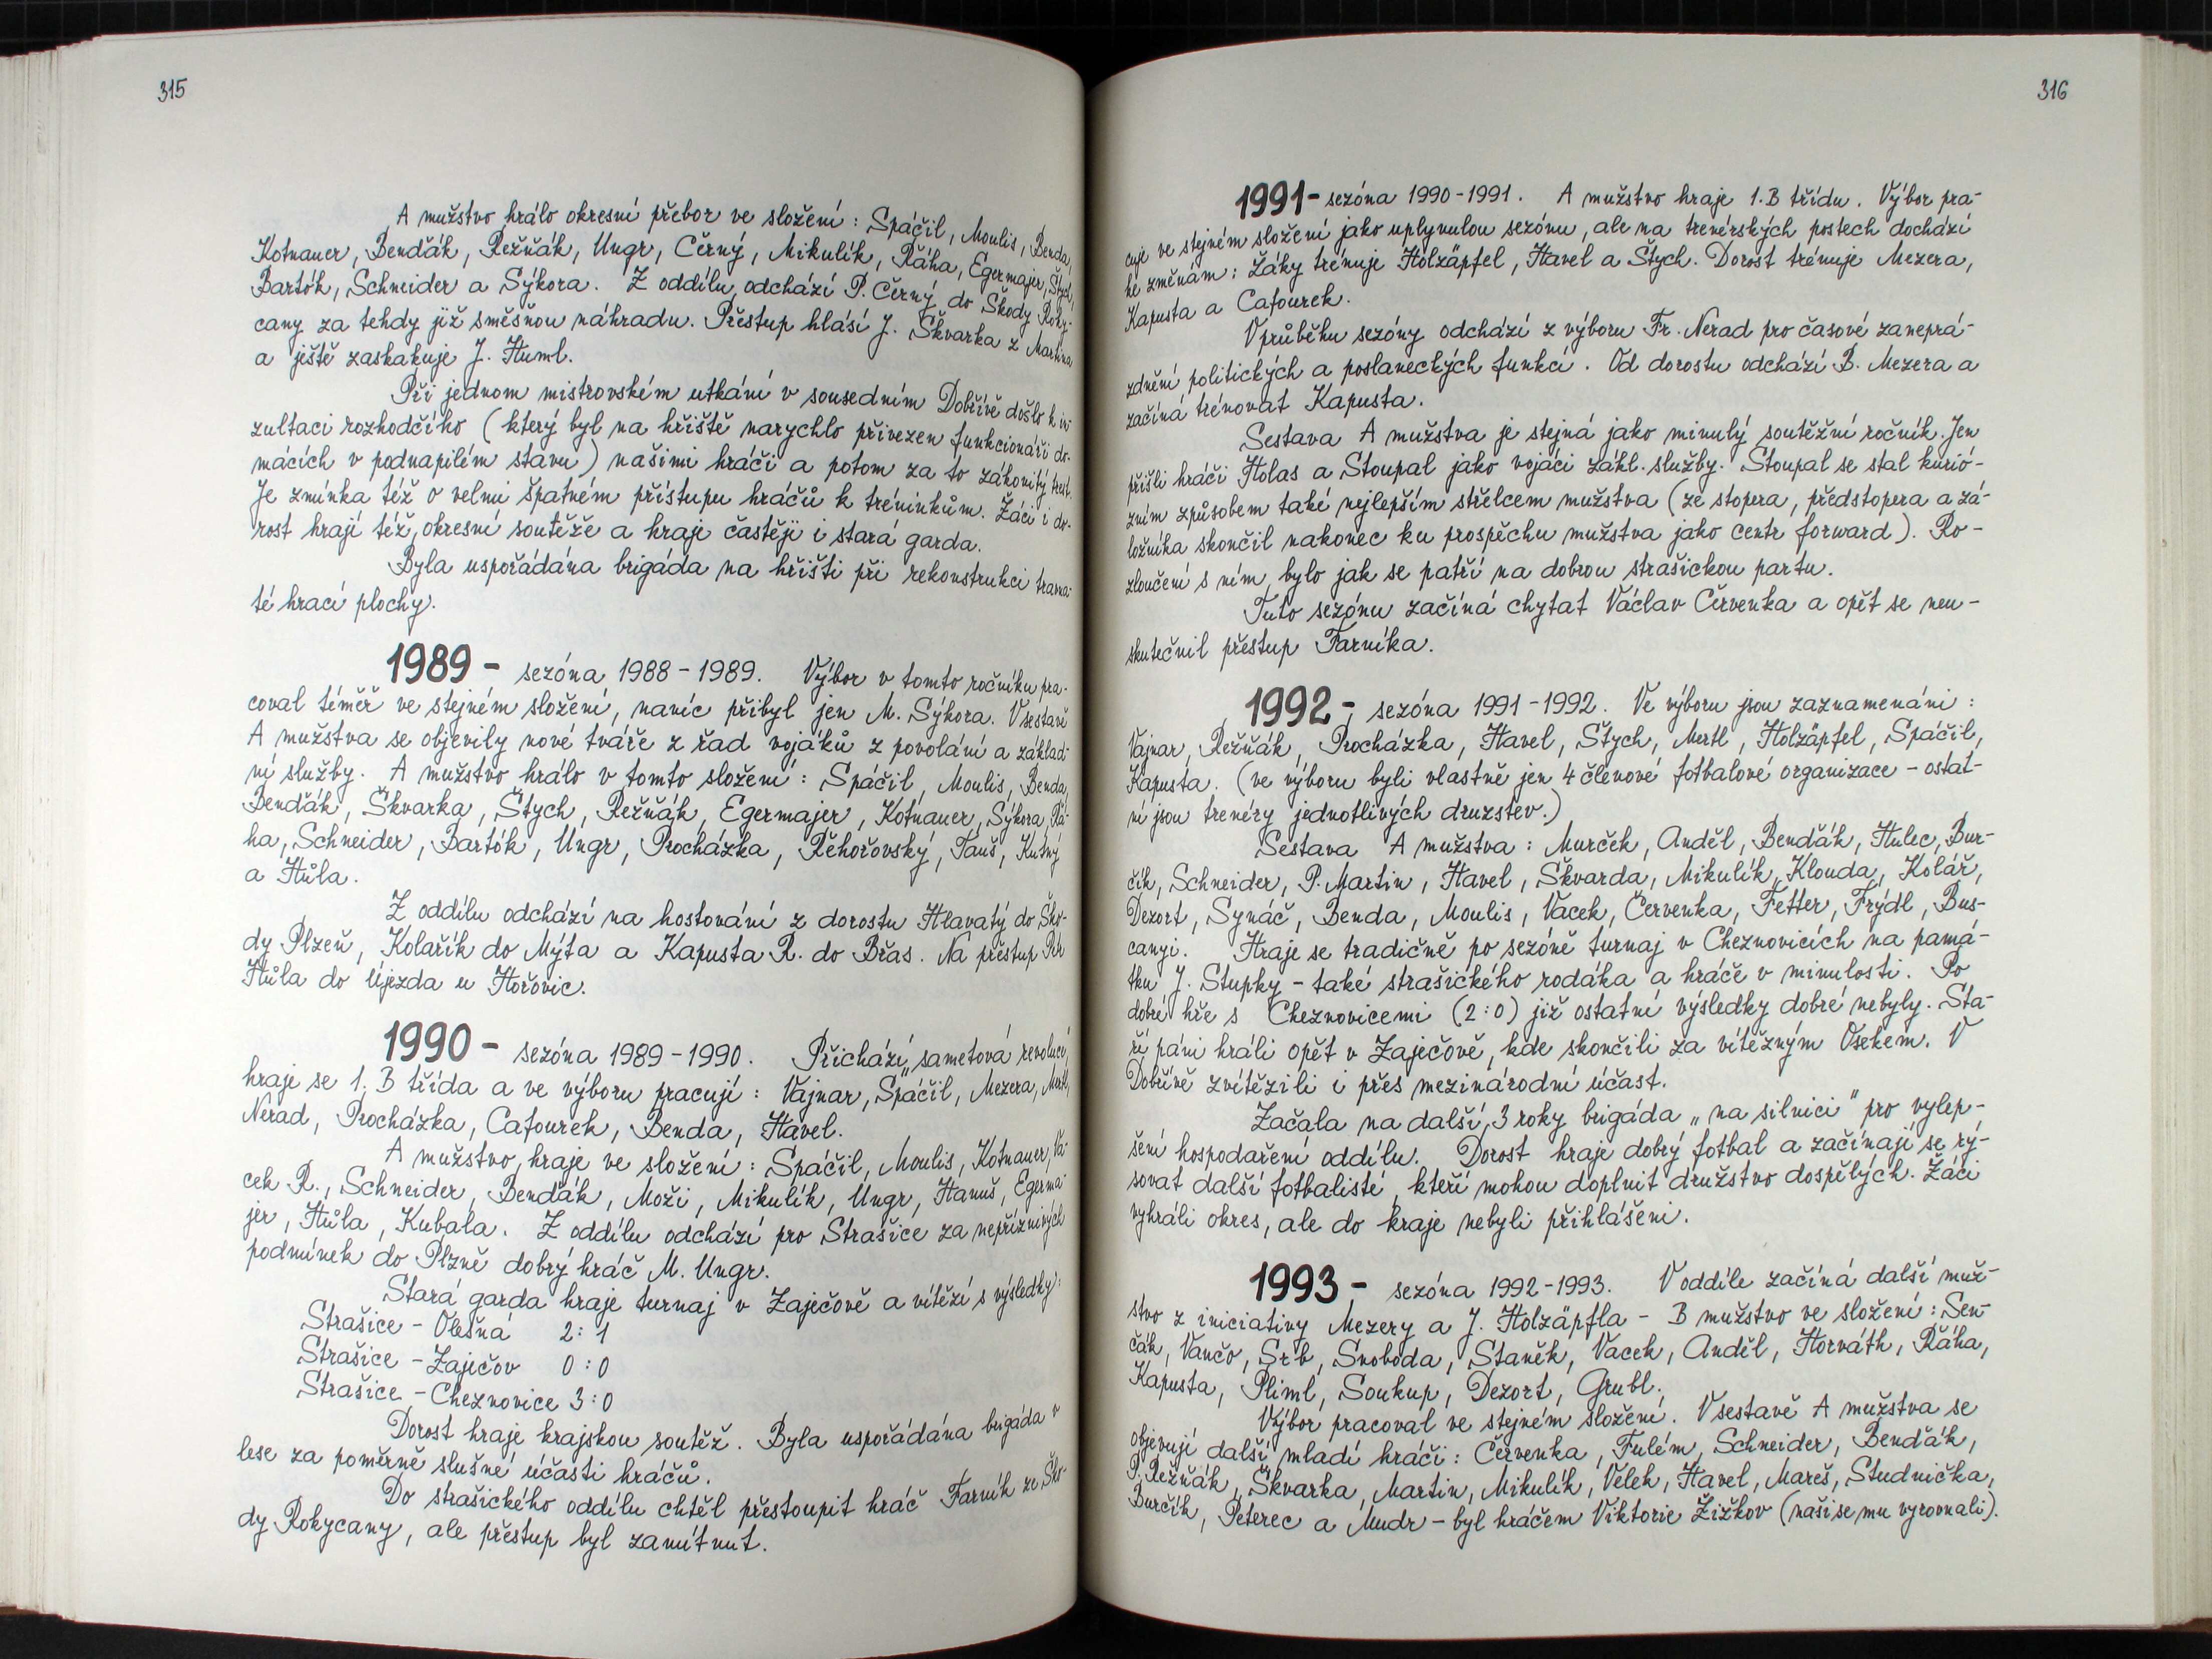 315
A mužstvo hrálo okresní přebor ve složení: Spáčil, Moulis, Benda,
Kotnauer, Bendčák, Režňák, Ungr, Černý, Mikulík, Ráha, Egermajer, Štych,
Bartók, Schneider a Sýkora. Z oddílu odchází P. Černý do Škody Roky-
cany za tehdy již směšnou náhradu. Přestup hlásí J. Škvarka z Martina
a ještě zaskakuje J. Huml.
Při jednom mistrovském utkání v sousedním Dobřívě došlo k in-
zultaci rozhodčího (který byl na hřiště narychlo přivezen funkcionáři do-
mácích v podnapilém stavu) našimi hráči a potom za to zákonitý trest.
Je zmínka též o velmi špatném přístupu hráčů k tréninkům. Žáci i do-
rost hrají též okresní soutěže a hraje častěji i stará garda.
Byla uspořádána brigáda na hřišti při rekonstrukci travna-
té hrací plochy.
1989 - sezóna 1988-1989. Výbor v tomto ročníku pra-
coval téměř ve stejném složení, navíc přibyl jen M. Sýkora. V sestavě
A mužstva se objevily nové tváře z řad vojáků z povolání a základ-
ní služby. A mužstvo hrálo v tomto složení: Spáčil, Moulis, Benda,
Bendčák, Škvarka, Štych, Režňák, Egermajer, Kotnauer, Sýkora, Rá-
ha, Schneider, Bartók, Ungr, Procházka, Řehořovský, Tauš, Kutný
a Hůla.
Z oddílu odchází na hostování z dorostu Hlavatý do Ško-
dy Plzeň, Kolařík do Mýta a Kapusta R. do Břas. Na přestup Petr
Hůla do Újezda u Hořovic.
1990 - sezóna 1989-1990. Přichází „sametová revoluce",
hraje se 1. B třída a ve výboru pracují: Vajnar, Spáčil, Mezera, Mertl,
Nerad, Procházka, Cafourek, Benda, Havel.
A mužstvo hraje ve složení: Spáčil, Moulis, Kotnauer, Va-
cek R., Schneider, Bendák, Moži, Mikulík, Ungr, Hanuš, Egerma-
jer, Hůla, Kubala. Z oddílu odchází pro Strašice za nepříznivých
podmínek do Plzně dobrý hráč M. Ungr.
Stará garda hraje turnaj v Zaječově a vítězí s výsledky:
Strašice - Olešná 2:1
Strašice - Zaječov 0:0
Strašice - Cheznovice 3:0
Dorost hraje krajskou soutěž. Byla uspořádána brigáda v
lese za poměrně slušné účasti hráčů.
Do strašického oddílu chtěl přestoupit hráč Farník ze Ško-
dy Rokycany, ale přestup byl zamítnut.
316
1991 - sezóna 1990-1991. A mužstvo hraje 1.B třídu. Výbor pra-
cuje ve stejném složení jako uplynulou sezónu, ale na trenérských postech dochází
ke změnám: Žáky trénuje Holzäpfel, Havel a Štych. Dorost trénuje Mezera,
Kapusta a Cafourek.
V průběhu sezóny odchází z výboru Fr. Nerad pro časové zanepráz-
zdnění politických a poslaneckých funkcí. Od dorostu odchází B. Mezera a
začíná trénovat Kapusta.
Sestava A mužstva je stejná jako minulý soutěžní ročník. Jen
přišli hráči Holas a Stoupal jako vojáci zákl. služby. Stoupal se stal kurió-
zním způsobem také nejlepším střelcem mužstva (ze stopera, předstopera a zá-
ložníka skončil nakonec ku prospěchu mužstva jako centr forward). Ro-
zloučení s ním bylo jak se patří na dobrou strašickou partu.
Tuto sezónu začíná chytat Václav Červenka a opět se neu-
skutečnil přestup Farníka.
1992 - sezóna 1991-1992. Ve výboru jsou zaznamenáni:
Vajnar, Režňák, Procházka, Havel, Štych, Mertl, Holzäpfel, Spáčil,
Kapusta. (ve výboru byli vlastně jen 4 členové fotbalové organizace - ostat-
ní jsou trenéry jednotlivých druzstev.)
Sestava A mužstva: Murček, Anděl, Bendčák, Hulec, Bur-
čík, Schneider, P. Martin, Havel, Škvarda, Mikulík, Klouda, Kolář,
Dezort, Synáč, Benda, Moulis, Vacek, Červenka, Fetter, Frýdl, Bus-
canyi. Hraje se tradičně po sezóně turnaj v Cheznovicích na pamá-
tku J. Stupky - také strašického rodáka a hráče v minulosti. Po
dobré hře s Cheznovicemi (2:0) již ostatní výsledky dobré nebyly. Sta-
ří páni hráli opět v Zaječově, kde skončili za vítězným Osekem. V
Dobřívě zvítězili i přes mezinárodní účast.
Začala na další 3 roky brigáda „na silnici" pro vylep-
šení hospodaření oddílu. Dorost hraje dobrý fotbal a začínají se rý-
sovat další fotbalisté, kteří mohou doplnit družstvo dospělých. Žáci
vyhráli okres, ale do kraje nebyli přihlášeni.
1993 - sezóna 1992-1993. V oddíle začíná další muž-
stvo z iniciativy Mezery a J. Holzäpfla - B mužstvo ve složení: Sen-
čák, Vančo, Srb, Svoboda, Staněk, Vacek, Anděl, Horváth, Ráha,
Kapusta, Pliml, Soukup, Dezort, Grubl.
Výbor pracoval ve stejném složení. V sestavě A mužstva se
objevují další mladí hráči: Červenka, Fulém, Schneider, Bendčák,
P. Režňák, Škvarka, Martin, Mikulík, Velek, Havel, Mareš, Studnička,
Burčík, Peterec a Mudr - byl hráčem Viktorie Žižkov (naši se mu vyrovnali).